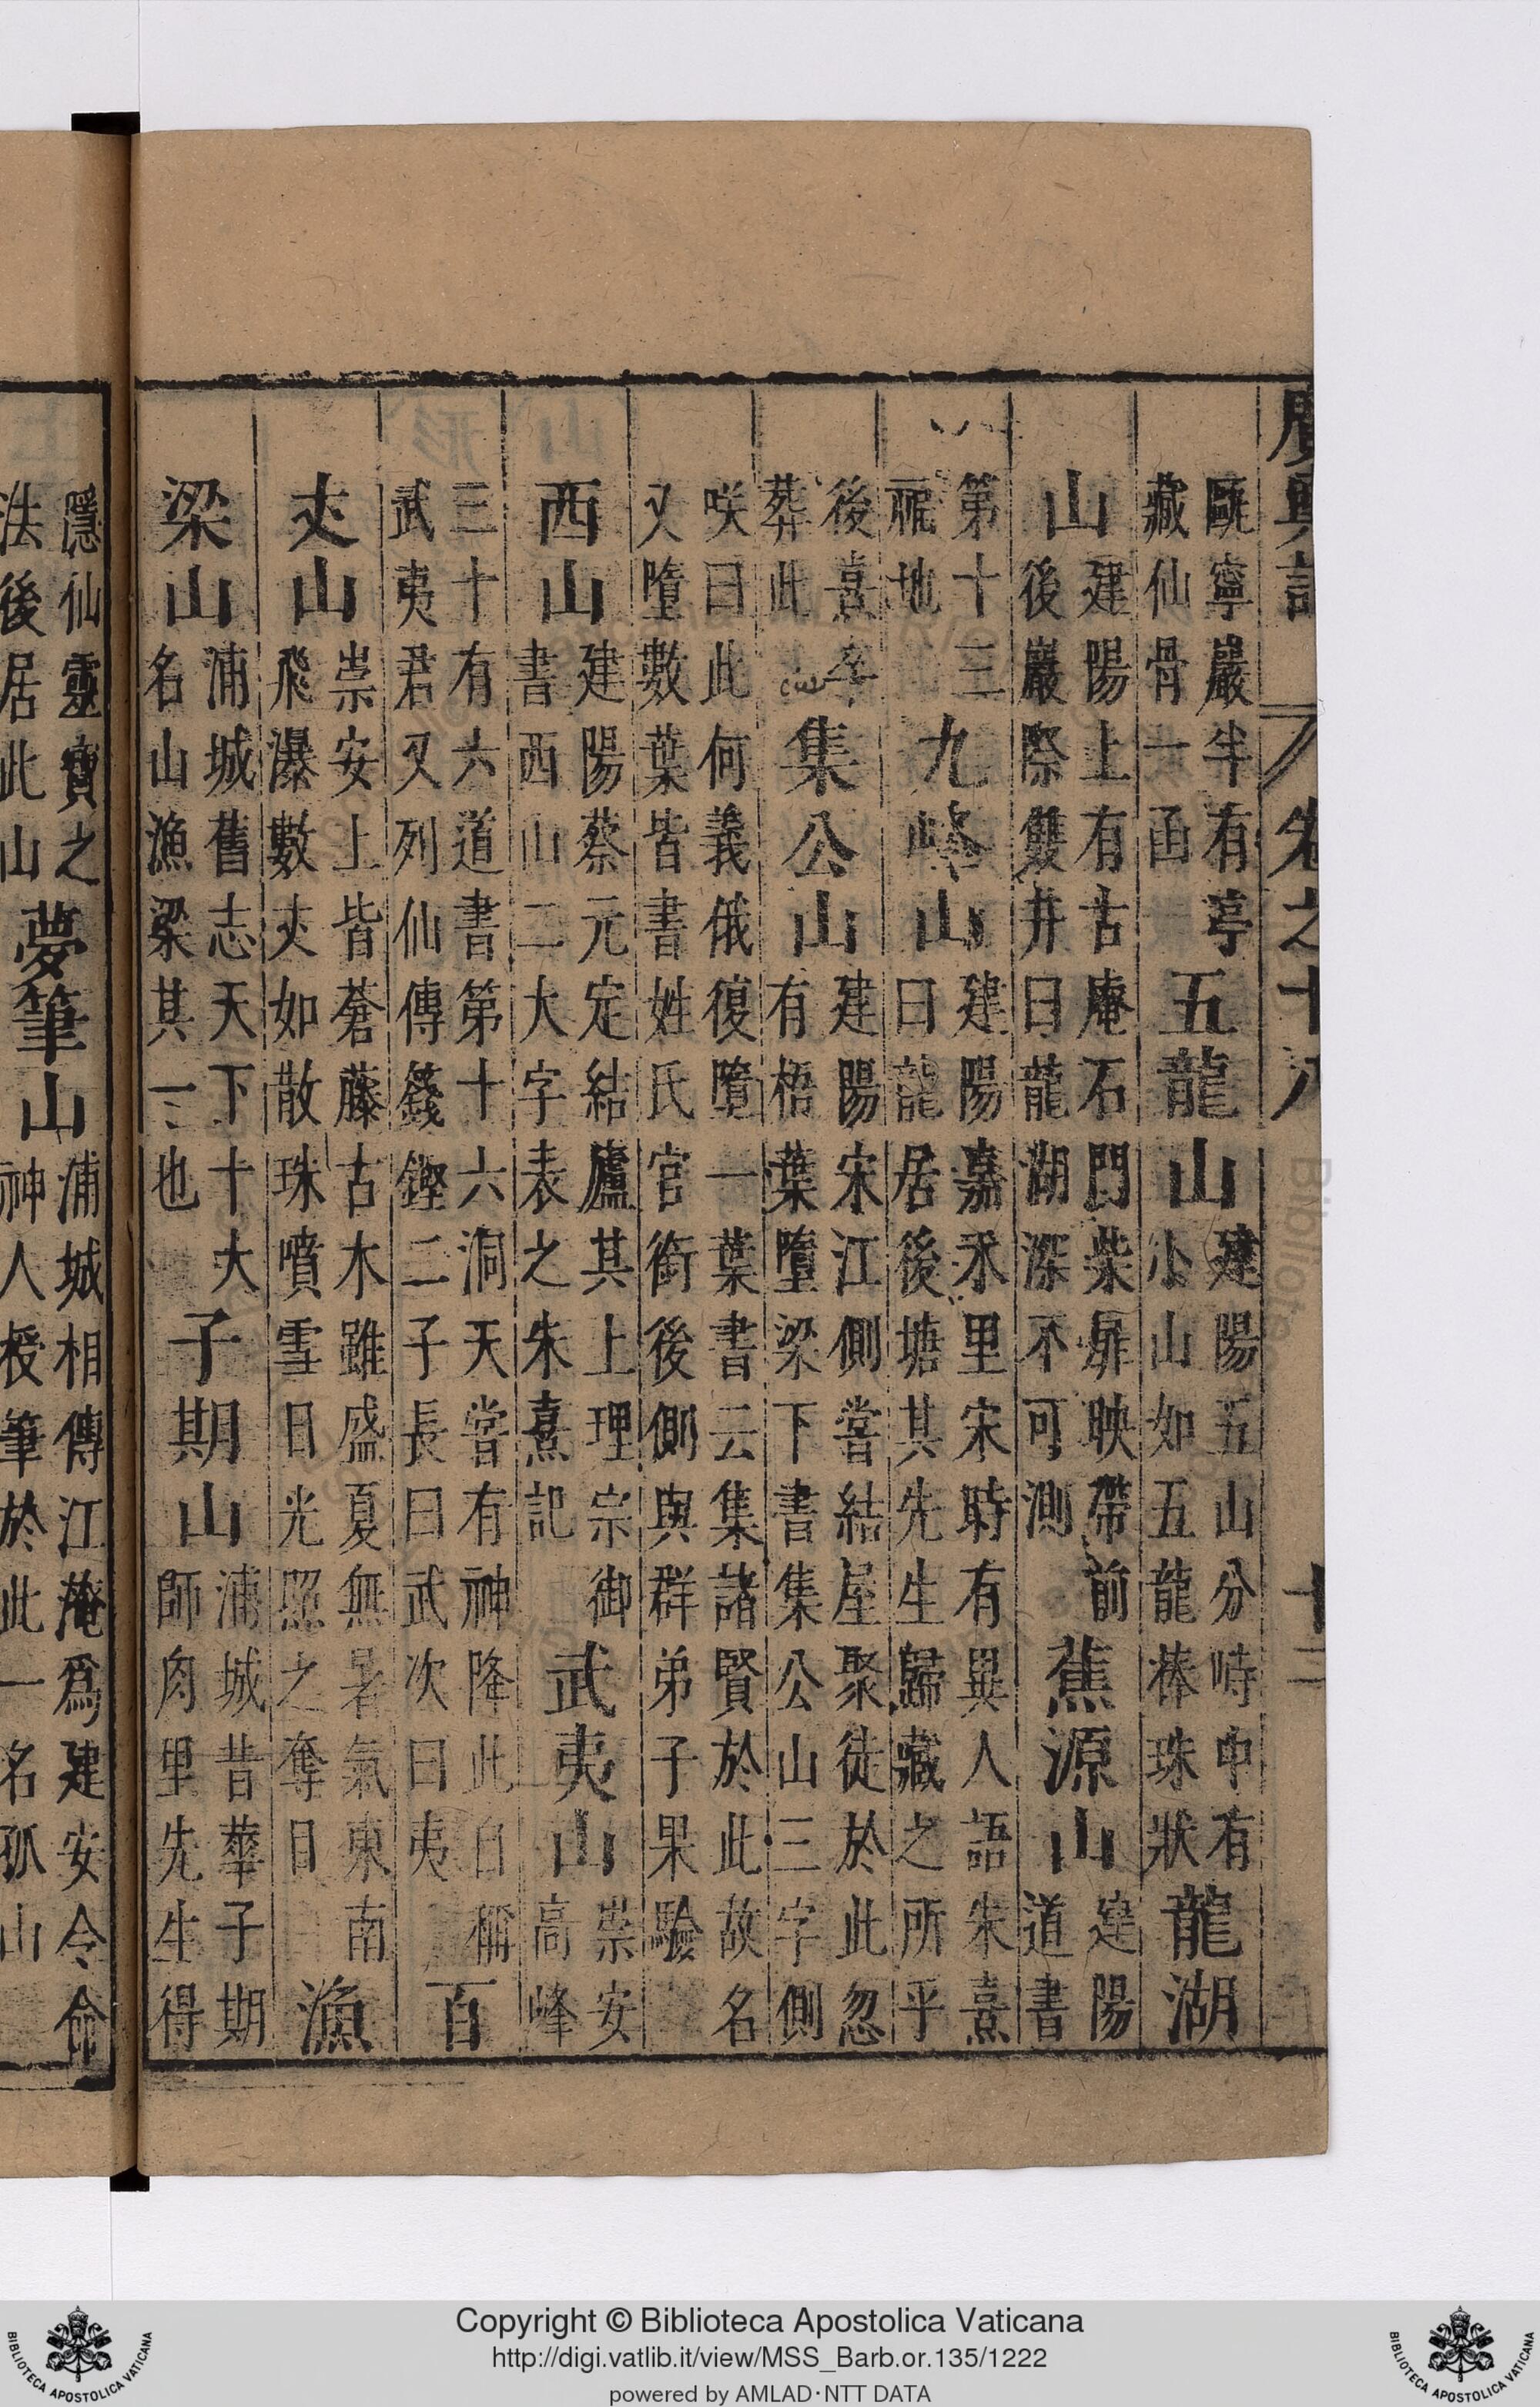 廣輿記 卷之十八 十二
甌寧巖半有亭
藏仙骨一函
五龍山
建陽五山分峙中有
小山如五龍棒珠狀
龍湖
山
建陽上有古庵石門柴扉映帶前
後巖際雙井曰龍湖深不可測
蕉源山
建陽
道書
第十三
福地
九峰山
建陽嘉禾里宋時有異人語朱熹
曰龍居後塘其先生歸藏之所乎
後熹卒
葬此
集公山
建陽宋江側嘗結屋聚徒於此忽
有梧葉墮梁下書集公山三字側
咲曰此何義俄復墮一葉書云集諸賢於此故名
又墮數葉皆書姓氏官銜後側與群弟子果驗
西山
建陽蔡元定結廬其上理宗御
書西山二大字表之朱熹記
武夷山
崇安
高峰
三十有六道書第十六洞天嘗有神降此自稱
武夷君又列仙傳籛鏗二子長曰武次曰夷
百
丈山
崇安上皆蒼藤古木雖盛夏無暑氣東南
飛瀑數丈如散珠噴雪日光照之奪目
漁
梁山
浦城舊志天下十大
名山漁梁其一也
子期山
浦城昔華子期
師肉里先生得
隱仙靈寶之
法後居此山
夢筆山
浦城相傳江淹爲建安令命
神人授筆於此一名孤山
Copyright © Biblioteca Apostolica Vaticana
http://digi.vatlib.it/view/MSS_Barb.or.135/1222
powered by AMLAD·NTT DATA
BIBLIOTECA APOSTOLICA VATICANA
BIBLIOTECA APOSTOLICA VATICANA